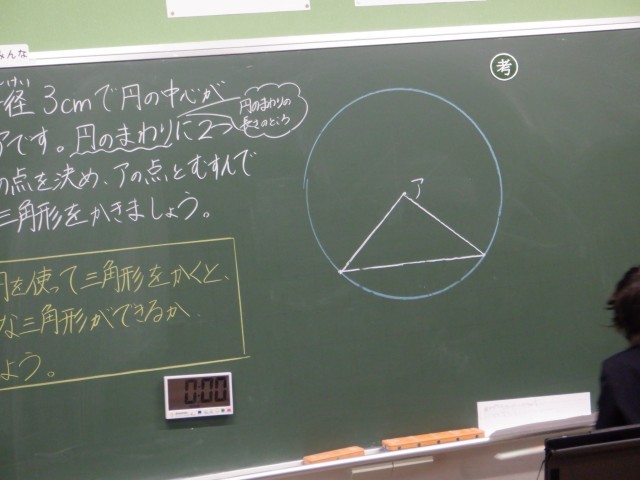 みんな
径 3cmで円の中心が
アです。円のまわりに2つ
円のまわりの
長さのところ
の点を決め、アの点とむすんで
三角形をかきましょう。
円を使って三角形をかくと、
な三角形ができるか
よう。
0:00
考
ア